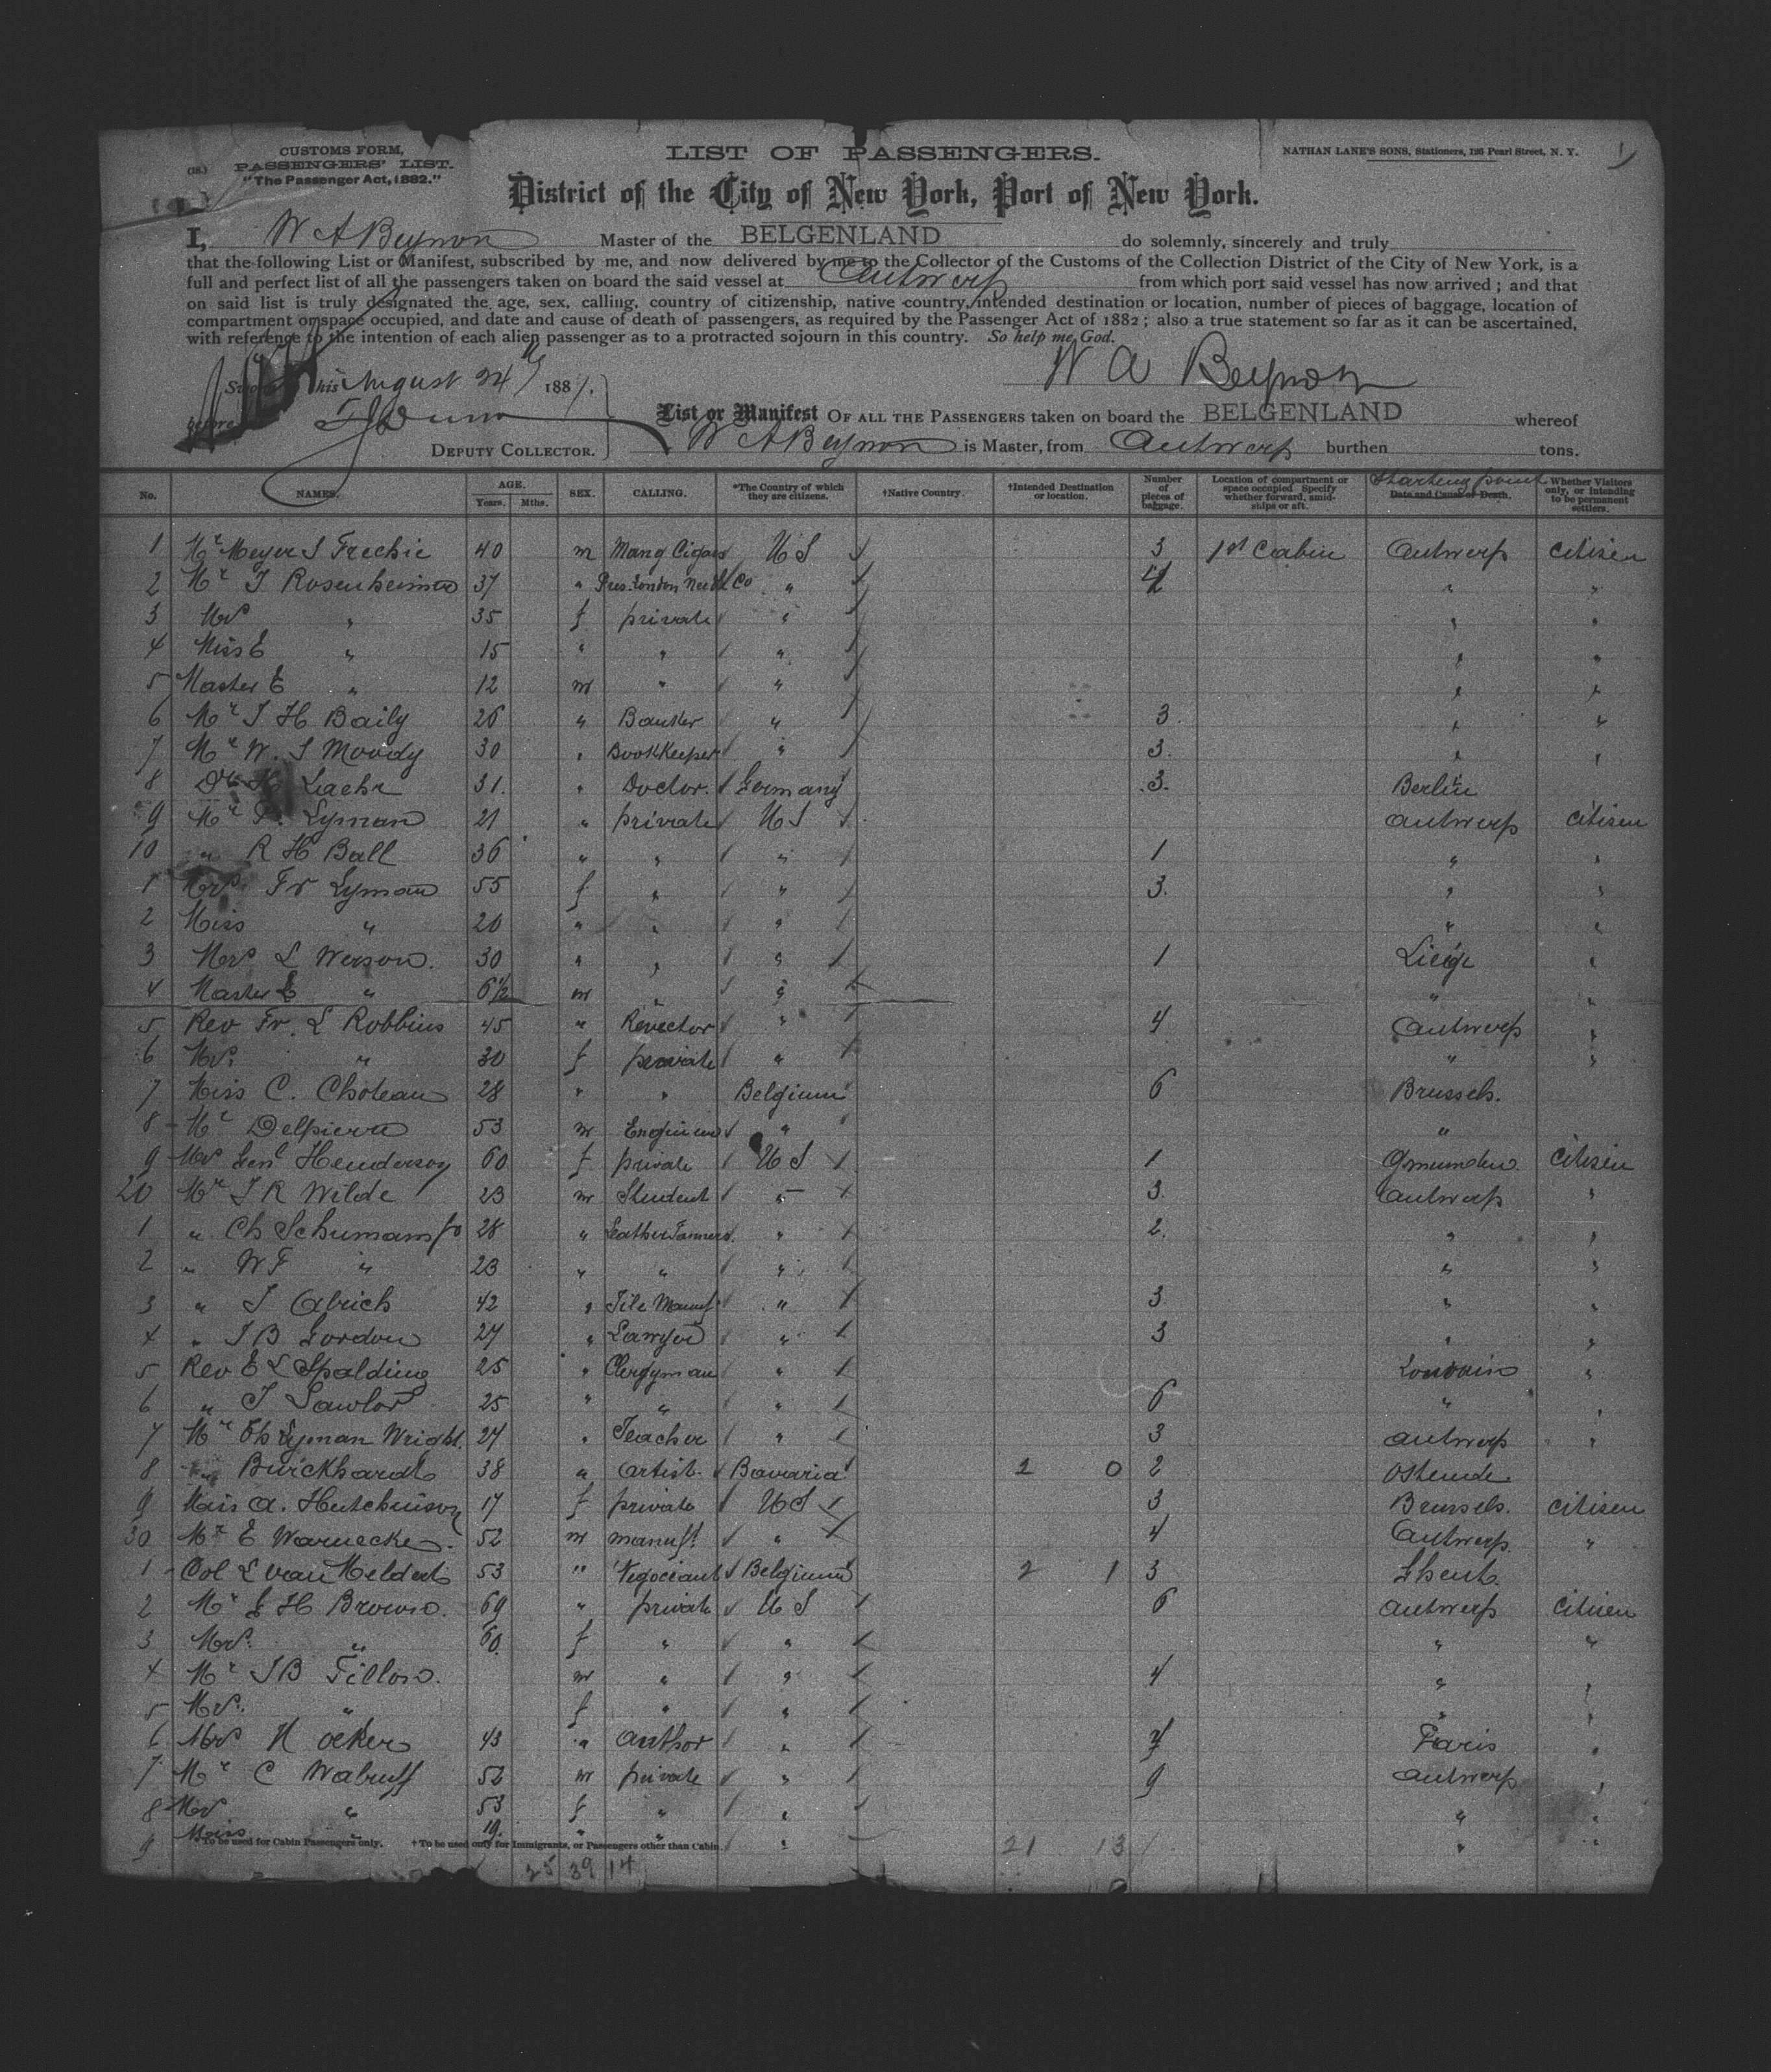 (18.)
CUSTOMS FORM,
PASSENGERS' LIST.
"The Passenger Act, 1882."
LIST OF PASSENGERS.
NATHAN LANE'S SONS, Stationers, 126 Pearl Street, N. Y.
1
District of the City of New York, Port of New York.
I, W A Beynon Master of the BELGENLAND do solemnly, sincerely and truly
that the following List or Manifest, subscribed by me, and now delivered by me to the Collector of the Customs of the Collection District of the City of New York, is a
full and perfect list of all the passengers taken on board the said vessel at Antwerp from which port said vessel has now arrived; and that
on said list is truly designated the age, sex, calling, country of citizenship, native country, intended destination or location, number of pieces of baggage, location of
compartment or space occupied, and date and cause of death of passengers, as required by the Passenger Act of 1882; also a true statement so far as it can be ascertained,
with reference to the intention of each alien passenger as to a protracted sojourn in this country. So help me God.
W A Beynon
this August 24 188
before
DEPUTY COLLECTOR.
List or Manifest OF ALL THE PASSENGERS taken on board the BELGENLAND whereof
W A Beynon is Master, from Antwerp burthen tons.
No. NAMES. AGE. Years. Mths. SEX. CALLING. *The Country of which they are citizens. †Native Country. †Intended Destination or location. Number of pieces of baggage. Location of compartment or space occupied. Specify whether forward, amidships or aft. Starting point Date and Cause of Death. Whether Visitors only, or intending to be permanent settlers.
1 Mr Meyer S Frechie 40 m Mang Cigars U S 3 1st Cabin Antwerp Citisen
2 Mr I Rosenheimer 37 " Pres. London Needl Co " " "
3 Mrs " 35 f private " " "
4 Miss E " 15 " " " " "
5 Master E " 12 m " " " "
6 Mr J H Baily 26 " Banker " 3 " "
7 Mr W. S Moody 30 " BookKeeper " 3 " "
8 Dr H Laehr 31 " Doctor. Germany 3 Berlin
9 Mr Lyman 21 " private U S Antwerp Citisen
10 " R H Ball 36 " " " 1 " "
1 Mrs Fr Lyman 55 f " " 3 " "
2 Miss " 20 " " " " "
3 Mrs L Werson. 30 " " " 1 Liége "
4 Master E " 6 1/2 m " " " "
5 Rev Fr. L Robbins 45 " Revector " 4 Antwerp "
6 Mrs. " 30 f private " " "
7 Miss C. Choteau 28 " " Belgium 6 Brussels.
8 Mr Delpierre 53 m Engineer " "
9 Mrs Genl Henderson 60 f private U S 1 Gmunden Citisen
20 Mr J R Wilde 23 m Student " 3 Antwerp "
1 " Ch Schumans 28 " Leather Tanners " 2 " "
2 " W F " 23 " " " " "
3 " J Abrich 42 " Tile Manuf " 3 " "
4 " J B Gordon 27 " Lawyer " 3 " "
5 Rev E L Spalding 25 " Clergyman " Louvain "
6 " J Lawlor 25 " " " 6 " "
7 Mr Ch Lyman Wright. 27 " Teacher " 3 Antwerp "
8 " Burckhardt 38 " Artist. Bavaria 2 0 2 Ostende.
9 Miss A. Hutchinson 17 f private U S 3 Brussels. Citisen
30 Mr E Warnecke. 52 m manuft. " 4 Antwerp. "
1 Col L van Meldert 53 " Negociant Belgium 2 1 3 Ghent.
2 Mr H Brown. 69 " private U S 6 Antwerp Citisen
3 Mrs. " 60. f " " " "
4 Mr J B Tillow. m " " 4 " "
5 Mrs. " f " " " "
6 Mrs N ocker 43 " Author " Paris "
7 Mr C Walruff 52 m private " 9 Antwerp "
8 Mrs " 53 f " " " "
9 Miss " 19. " " " 21 13 " "
*To be used for Cabin Passengers only. †To be used only for Immigrants, or Passengers other than Cabin.
25 39 14